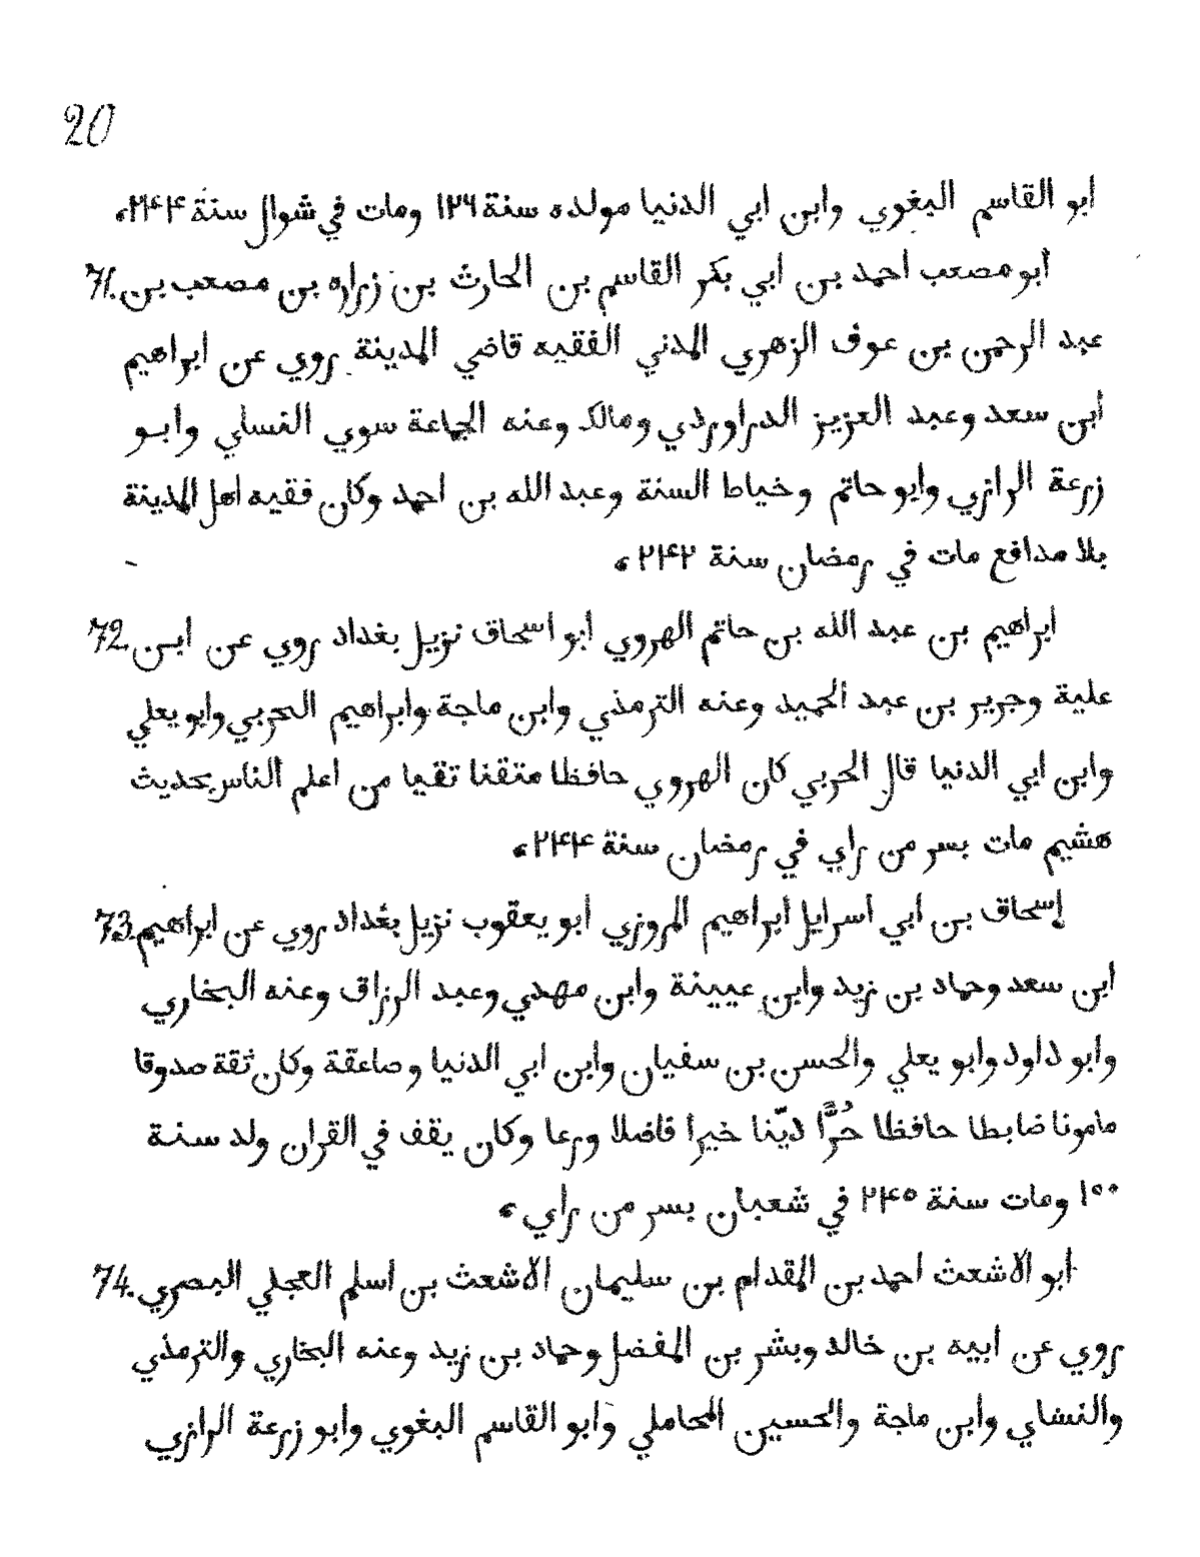 20
ابو القاسم البغوي وابن ابي الدنيا مولده سنة ١٢٦ ومات في شوال سنة ٢۴۴
71. أبو مصعب احمد بن ابي بكر القاسم بن الحارث بن زراره بن مصعب بن
عبد الرحمن بن عوف الزهري المدني الفقيه قاضي المدينة روي عن ابراهيم
أبن سعد وعبد العزيز الدراوردي ومالك وعنه الجماعة سوي النساي وابو
زرعة الرازي وابو حاتم وخياط السنة وعبد الله بن احمد وكان فقيه اهل المدينة
بلا مدافع مات في رمضان سنة ٢۴٢
72. ابراهيم بن عبد الله بن حاتم الهروي ابو اسحاق نزيل بغداد روي عن ابن
علية وجرير بن عبد الحميد وعنه الترمذي وابن ماجة وابراهيم الحربي وابو يعلي
وابن ابي الدنيا قال الحربي كان الهروي حافظا متقنا تقيا من اعلم الناس بحديث
هشيم مات بسر من راي في رمضان سنة ٢۴۴
73. إسحاق بن أبي أسرايل أبراهيم المروزي أبو يعقوب نزيل بغداد روي عن ابراهيم
ابن سعد وحماد بن زيد وابن عيينة وابن مهدي وعبد الرزاق وعنه البخاري
وابو داود وابو يعلي والحسن بن سفيان وابن ابي الدنيا وصاعقة وكان ثقة صدوقا
مامونا ضابطا حافظا حُرًّا ديّنا خيرا فاضلا ورعا وكان يقف في القران ولد سنة
١٥٥ ومات سنة ٢۴٥ في شعبان بسر من راي
74. ابو الاشعث احمد بن المقدام بن سليمان الاشعث بن اسلم العجلي البصري
روي عن ابيه بن خالد وبشر بن المفضل وحماد بن زيد وعنه البخاري والترمذي
والنساي وابن ماجة والحسين المحاملي وابو القاسم البغوي وابو زرعة الرازي